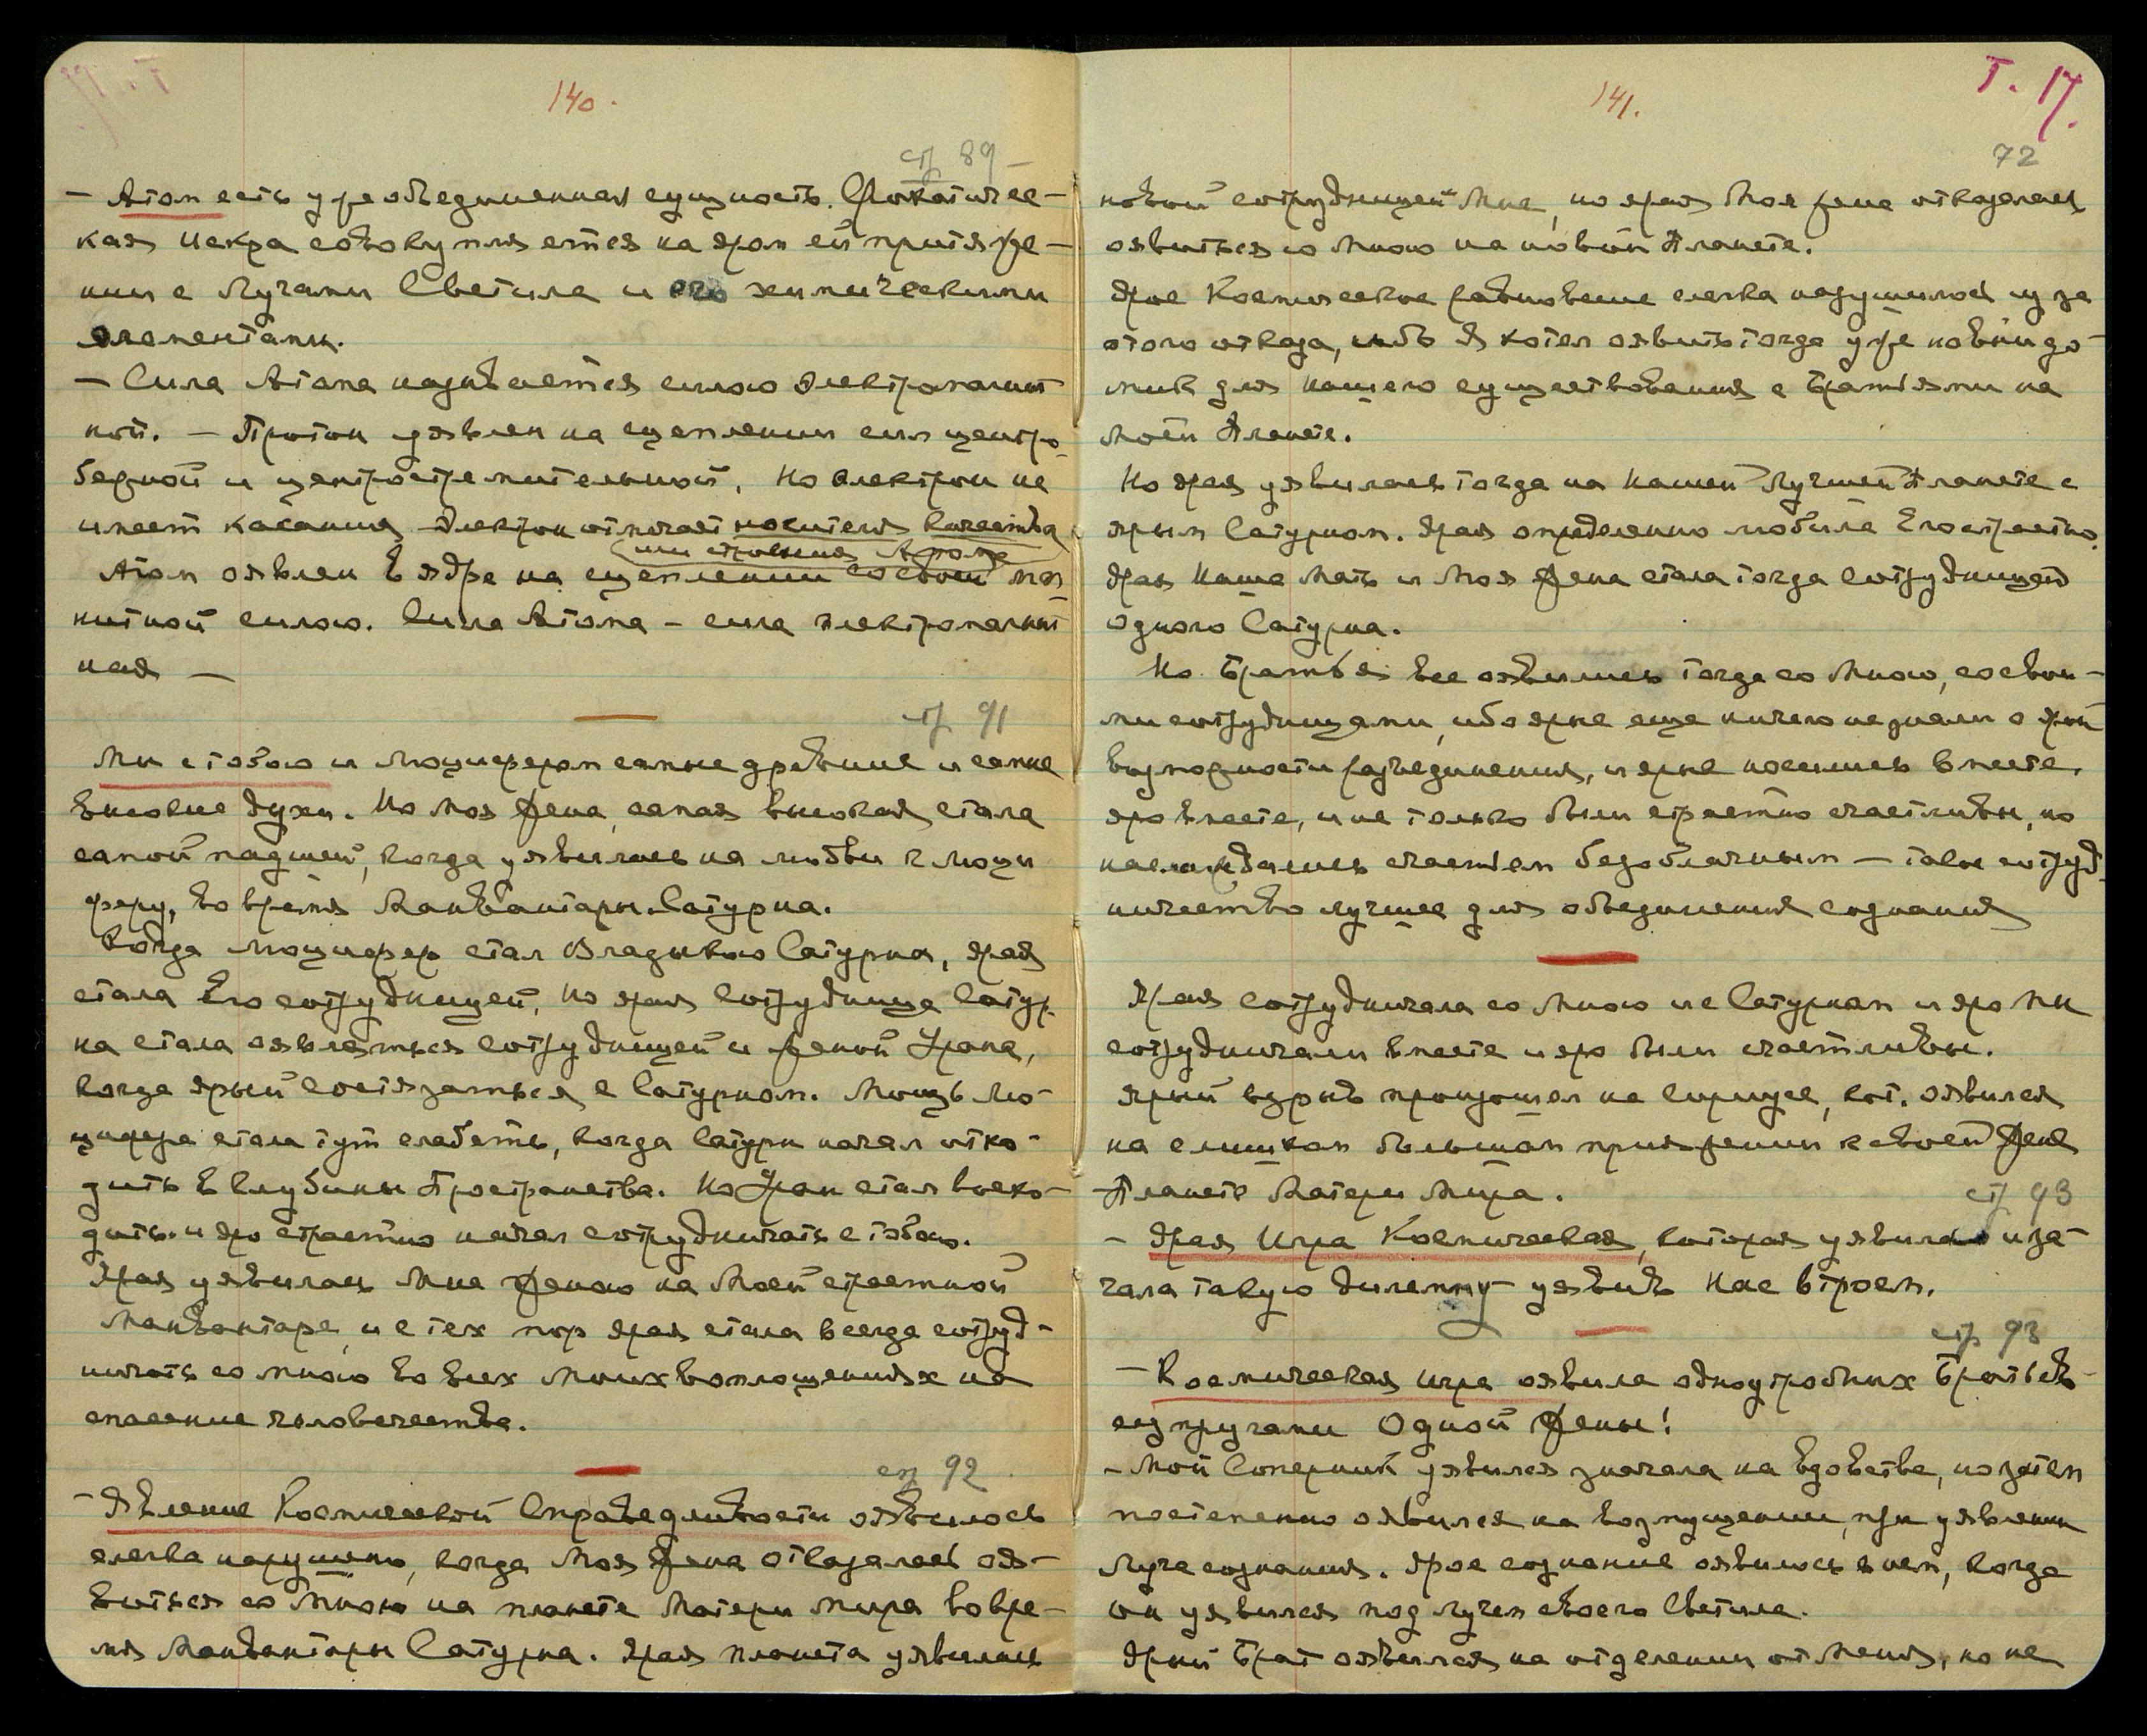 140.
стр 89 —
— Атом есть уже объединенная сущность. Фохатичес-
кая Искра совокупляется на яром ей притяже-
нии с Лучами Светила и его химическими
элементами.
— Сила Атома называется силою Электромагнит
ной. — Протон уявлен на сцеплении сил центро-
бежной и центростремительной. Но электрон не
имеет касания. Электрон отличает носителя качества
(или строения Атома)
Атом оявлен в ядре на сцеплении со своей маг
нитной силою. Сила Атома — сила электромагнит
ная —
стр 91
Мы с тобою и Люцифером самые древние и самые
высокие духи. Но моя Жена, самая высокая, стала
самой падшей, когда уявилась на любви к Люци
феру, во время Манвантары Сатурна.
Когда Люцифер стал Владыкою Сатурна, ярая
стала Его сотрудницей, но ярая Сотрудница Сатур-
на стала оявляться сотрудницей и женой Урана,
когда ярый состязаться с Сатурном. Мощь Лю-
цифера стала тут слабеть, когда Сатурн начал отхо-
дить в Глубины Пространства. Но Уран стал восхо-
дить и яро страстно начал сотрудничать с тобою.
Ярая уявилась Мне Женою на Моей страстной
Манвантаре, и с тех пор ярая стала всегда сотруд-
ничать со мною во всех Моих воплощениях на
спасение человечества.
стр 92
— Явление Космической Справедливости оявилось
слегка нарушено, когда Моя Жена отказалась оя-
виться со Мною на планете Матери Мира во вре-
мя Манвантары Сатурна. Ярая планета уявилась
141.
Т. 17.
72
новой сотрудницей Мне, но ярая Моя Жена отказалась
оявиться со Мною на новой Планете.
Ярое Космическое равновесие слегка нарушилось из за
этого отказа, ибо Я хотел оявить тогда уже новый до-
мик для нашего существования с Братьями на
Моей Планете.
Но ярая уявилась тогда на Нашей Лучшей Планете с
ярым Сатурном. Ярая определенно любила Его страстно.
Ярая Наша Мать и Моя Жена стала тогда Сотрудницей
Одного Сатурна.
Но Братья все оявились тогда со Мною, со свои-
ми сотрудницами, ибо ярые еще ничего не знали о ярой
возможности разъединения, и ярые носились вместе,
яро вместе, и не только были страстно счастливы, но
наслаждались счастьем безоблачным — такое сотруд-
ничество лучшее для объединения сознания
Ярая сотрудничала со Мною и с Сатурном и яро мы
сотрудничали вместе и яро были счастливы.
Ярый взрыв произошел на Сириусе, кот. оявился
на слишком большом приближении к своей Жене
Планете Матери Мира.
стр 93
— Ярая Игра Космическая, которая уявила и на-
чала такую дилемму — уявить Нас втроем.
стр 93
— Космическая игра оявила одноутробных Братьев
супругами Одной Жены!
— Мой Соперник уявился сначала на вдовстве, но затем
постепенно оявился на возмущении, при уявлении
Луча сознания. Ярое сознание оявилось в нем, когда
он уявился под лучем своего Светила.
Ярый Брат оявился на отделении от Меня, но не